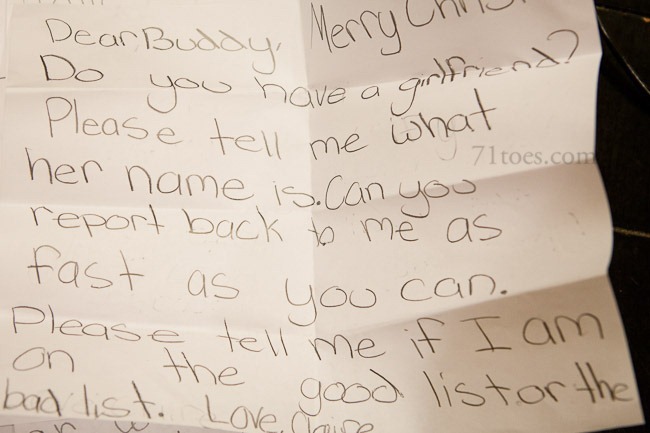 Merry
Dear Buddy,
Do you have a girlfriend?
Please tell me what
her name is. Can you
71toes.com
report back to me as
fast as you can.
Please tell me if I am
on the good list or the
bad list. Love, Claire